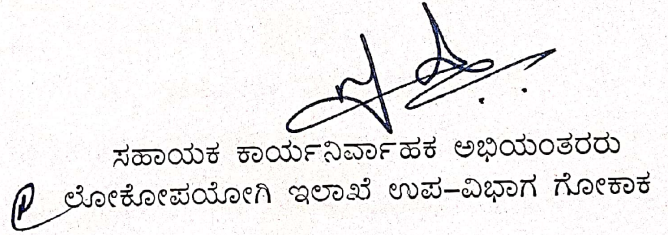 ಸಹಾಯಕ ಕಾರ್ಯನಿರ್ವಾಹಕ ಅಭಿಯಂತರರು
ಲೋಕೋಪಯೋಗಿ ಇಲಾಖೆ ಉಪ-ವಿಭಾಗ ಗೋಕಾಕ